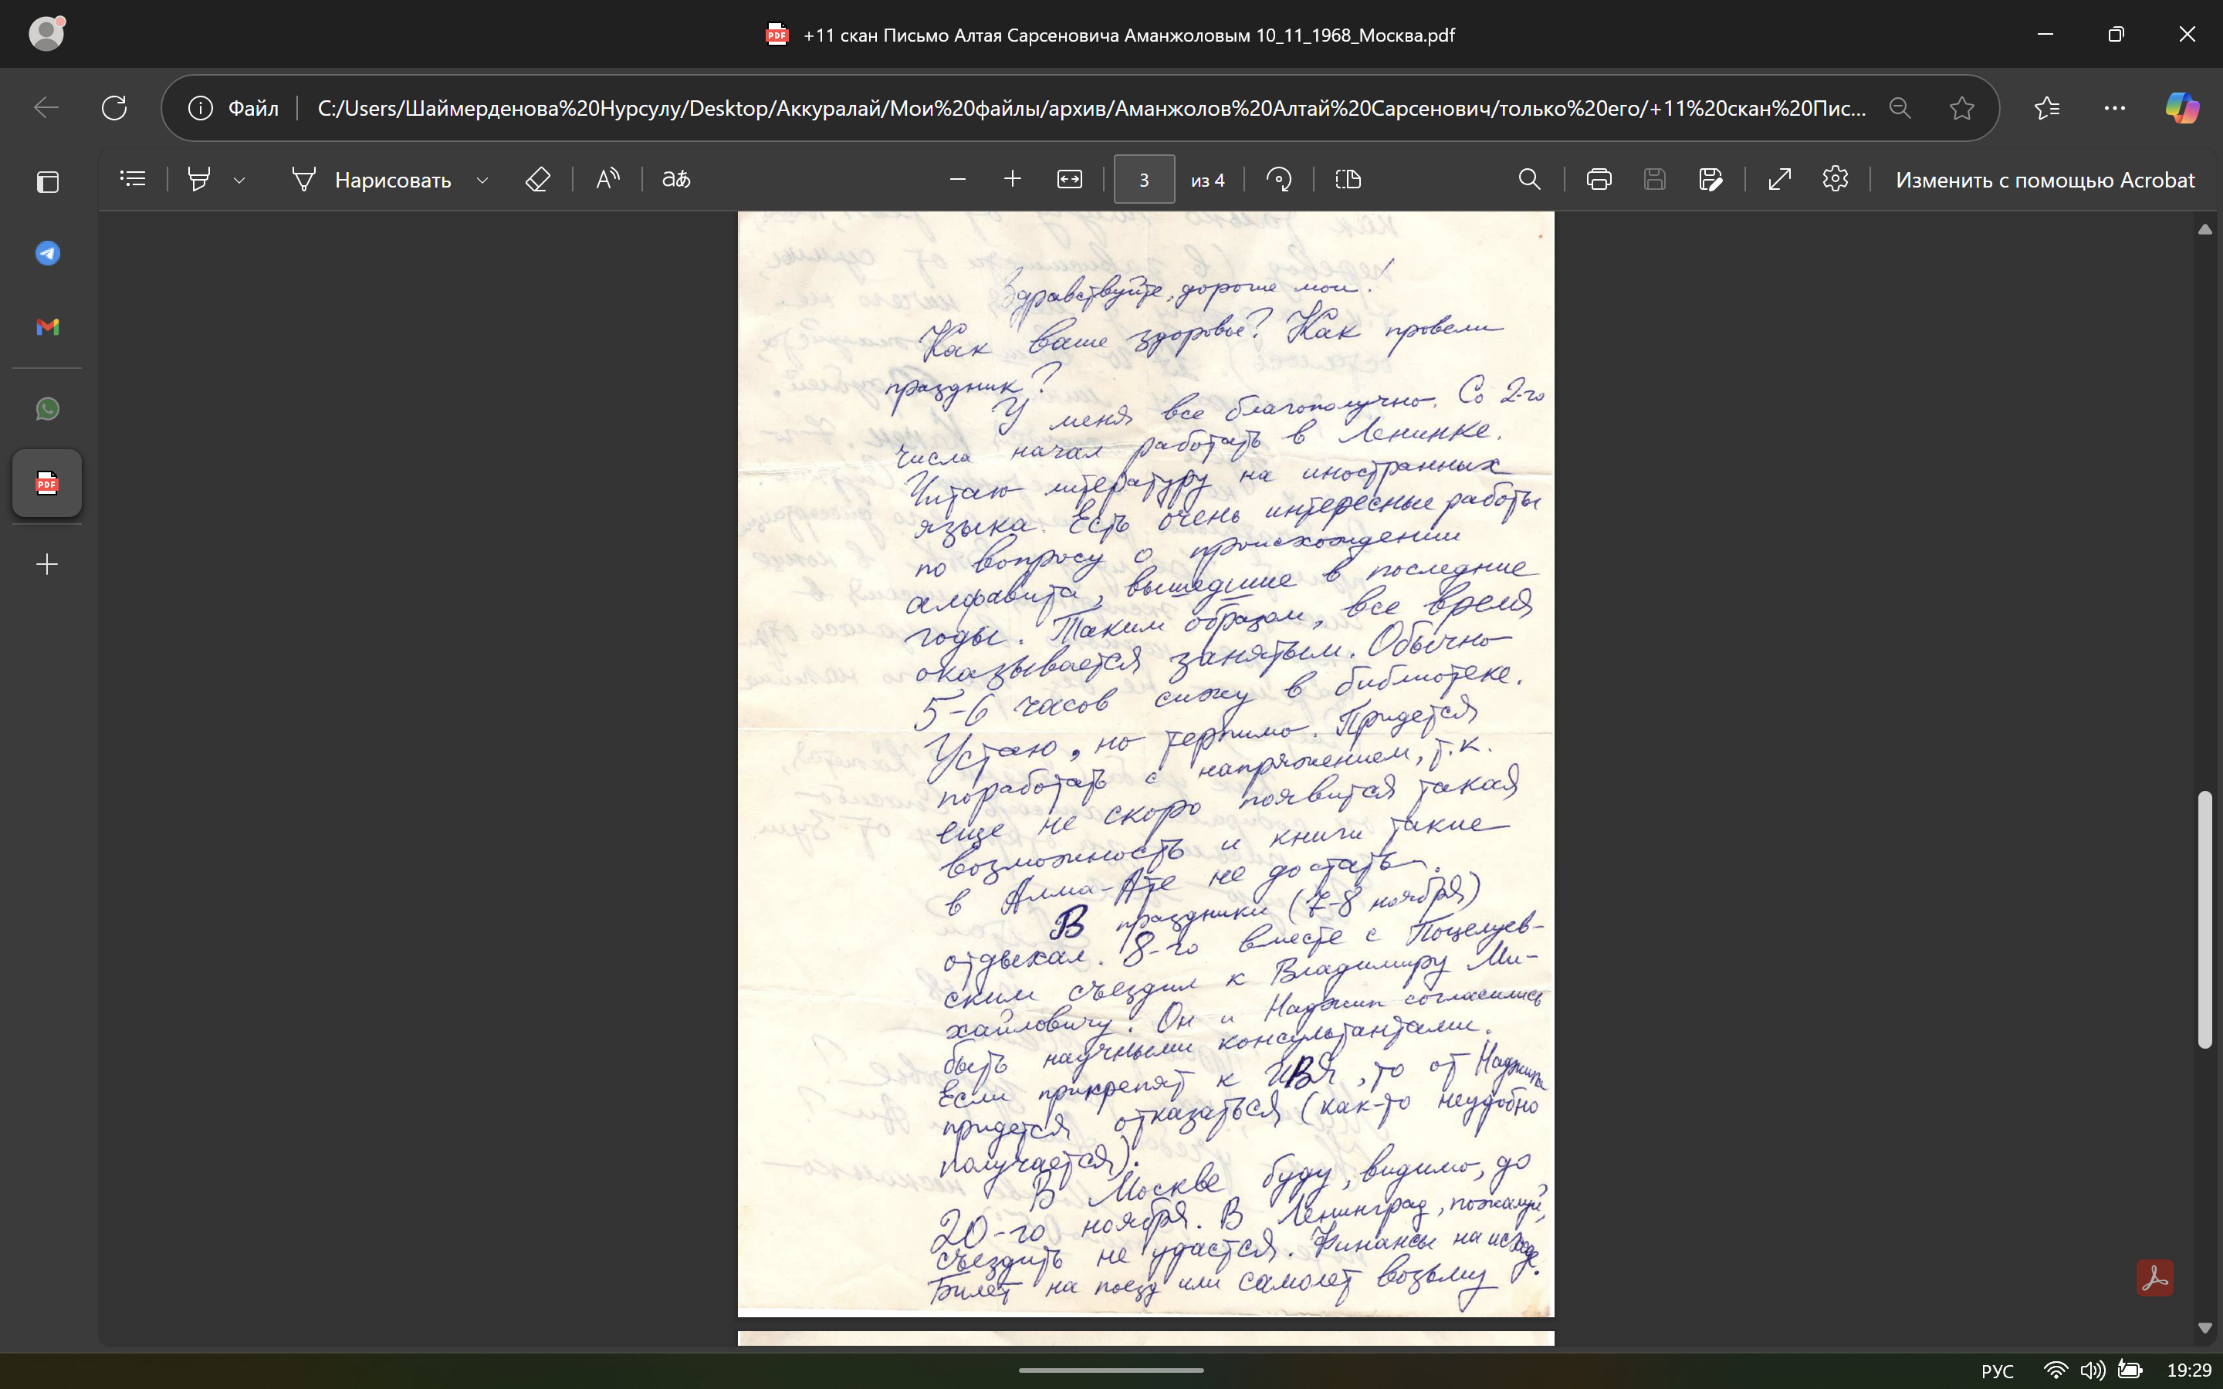 +11 скан Письмо Алтая Сарсеновича Аманжоловым 10_11_1968_Москва.pdf
Файл
C:/Users/Шаймерденова%20Нурсулу/Desktop/Аккуралай/Мои%20файлы/архив/Аманжолов%20Алтай%20Сарсенович/только%20его/+11%20скан%20Пис...
Нарисовать
3 из 4
Изменить с помощью Acrobat
Здравствуйте, дорогие мои!
Как ваше здоровье? Как провели
праздник?
У меня все благополучно. Со 2-го
числа начал работать в Ленинке.
Читаю литературу на иностранных
языках. Есть очень интересные работы
по вопросу о происхождении
алфавита, вышедшие в последние
годы. Таким образом, все время
оказывается занятым. Обычно
5-6 часов сижу в библиотеке.
Устаю, но терпимо. Придется
поработать с напряжением, т.к.
еще не скоро появится такая
возможность и книги такие
в Алма-Ате не достать.
В праздники (7-8 ноября)
отдыхал. 8-го вместе с Поцелуев-
ским съездил к Владимиру Ми-
хайловичу. Он и Наджип согласились
быть научными консультантами.
Если прикрепят к ИВЯ, то от Наджипа
придется отказаться (как-то неудобно
получается).
В Москве буду, видимо, до
20-го ноября. В Ленинград, пожалуй,
съездить не удастся. Финансы на исходе.
Билет на поезд или самолет возьму
PDF
РУС
19:29